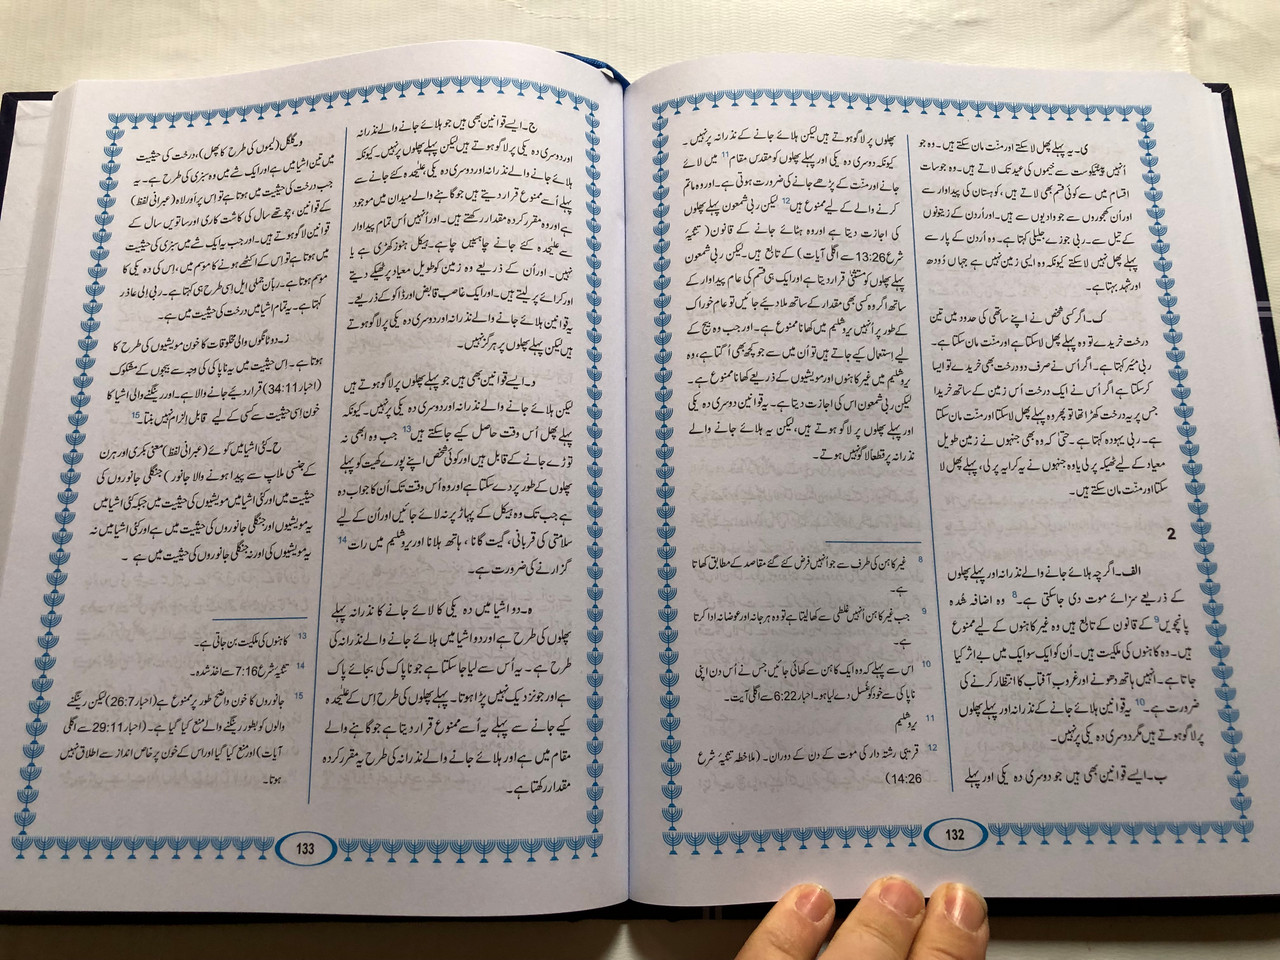 ی۔ یہ پہلے پھل لا سکتے اور منت مان سکتے ہیں۔ وہ جو
اُنہیں پینٹیکوست سے خیموں کی عید تک لاتے ہیں۔ وہ جو سات
اقسام میں سے کوئی قسم بھی لاتے ہیں، کوہستان کی پیداوار سے
اور اُن کھجوروں سے جو وادیوں سے ہیں۔ اور اُردن کے زیتونوں
کے تیل سے۔ ربی جوزے جلیلی کہتا ہے۔ وہ اُردن کے پار سے
پہلے پھل نہیں لا سکتے کیونکہ وہ ایسی زمین نہیں ہے جہاں دُودھ
اور شہد بہتا ہے۔
ک۔ اگر کسی شخص نے اپنے ساتھی کی حدود میں تین
درخت خریدے تو وہ پہلے پھل لا سکتا ہے اور منت مان سکتا ہے۔
ربی میئر کہتا ہے۔ اگر اُس نے صرف دو درخت بھی خریدے تو ایسا
کر سکتا ہے اگر اُس نے ایک درخت اُس زمین کے ساتھ خریدا
جس پر یہ درخت کھڑا تھا تو پھر وہ پہلے پھل لا سکتا اور منت مان سکتا
ہے۔ ربی یہودہ کہتا ہے۔ حتیٰ کہ وہ بھی جنہوں نے زمین طویل
معیاد کے لیے ٹھیکہ پر لی یا وہ جنہوں نے یہ کرایہ پر لی، پہلے پھل لا
سکتا اور منّت مان سکتے ہیں۔
2
الف۔ اگرچہ ہلائے جانے والے نذرانہ اور پہلے پھلوں
کے ذریعے سزائے موت دی جا سکتی ہے۔8 وہ اضافہ شدہ
پانچویں9 کے قانون کے تابع ہیں وہ غیر کاہنوں کے لیے ممنوع
ہیں۔ وہ کاہنوں کی ملکیت ہیں۔ اُن کو ایک سو ایک میں بے اثر کیا
جاتا ہے۔ انہیں ہاتھ دھونے اور غروبِ آفتاب کا انتظار کرنے کی
ضرورت ہے۔10 یہ قوانین ہلائے جانے کے نذرانہ اور پہلے پھلوں
پر لاگو ہوتے ہیں مگر دوسری دہ یکی پر نہیں۔
ب۔ ایسے قوانین بھی ہیں جو دوسری دہ یکی اور پہلے
پھلوں پر لاگو ہوتے ہیں لیکن ہلائے جانے کے نذرانہ پر نہیں۔
کیونکہ دوسری دہ یکی اور پہلے پھلوں کو مقدس مقام11 میں لائے
جانے اور منّت کے پڑھے جانے کی ضرورت ہوتی ہے۔ اور وہ ماتم
کرنے والے کے لیے ممنوع ہیں12 لیکن ربی شمعون پہلے پھلوں
کی اجازت دیتا ہے اور وہ ہٹائے جانے کے قانون (تثنیۂ
شرع 13:26 سے اگلی آیات) کے تابع ہیں۔ لیکن ربی شمعون
پہلے پھل کو مستثنٰی قرار دیتا ہے اور ایک ہی قسم کی عام پیداوار کے
ساتھ اگر وہ کسی بھی مقدار کے ساتھ ملا دیئے جائیں تو عام خوراک
کے طور پر اُنہیں یروشلیم میں کھانا ممنوع ہے۔ اور جب وہ بیج کے
لیے استعمال کیے جاتے ہیں تو اُن میں سے جو کچھ بھی اُگتا ہے، وہ
یروشلیم میں غیر کاہنوں اور مویشیوں کے ذریعے کھانا ممنوع ہے۔
لیکن ربی شمعون اس کی اجازت دیتا ہے۔ یہ قوانین دوسری دہ یکی
اور پہلے پھلوں پر لاگو ہوتے ہیں، لیکن یہ ہلائے جانے والے
نذرانہ پر قطعاً لاگو نہیں ہوتے۔
8 غیر کاہن کی طرف سے جو اُنہیں فرض کئے گئے مقاصد کے مطابق کھاتا
ہے۔
9 جب غیر کاہن انہیں غلطی سے کھا لیتا ہے تو وہ ہرجانہ اور عوضانہ ادا کرتا
ہے۔
10 اس سے پہلے کہ وہ ایک کاہن سے کھائی جائیں جس نے اُس دن اپنی
ناپاکی سے خود کو غسل دے لیا ہو۔ احبار 6:22 سے اگلی آیت۔
11 یروشلیم
12 قریبی رشتہ دار کی موت کے دن کے دوران۔ (ملاحظہ تثنیۂ شرع
14:26)
132
ج۔ ایسے قوانین بھی ہیں جو ہلائے جانے والے نذرانہ
اور دوسری دہ یکی پر لاگو ہوتے ہیں لیکن پہلے پھلوں پر نہیں۔ کیونکہ
ہلائے جانے والے نذرانہ اور دوسری دہ یکی علیٰحدہ کئے جانے سے
پہلے اُسے ممنوع قرار دیتے ہیں جو گاہنے والے میدان میں موجود
ہے اور وہ مقرر کردہ مقدار رکھتے ہیں۔ اور اُنہیں اُس تمام پیداوار
سے علیٰحدہ کئے جانے چاہئیں چاہے۔ ہیکل ہنوز کھڑی ہے یا
نہیں۔ اور اُن کے ذریعے وہ زمین کو طویل معیاد پر ٹھیکے دیتے
اور کرائے پر لیتے ہیں۔ اور ایک غاصب قابض اور ڈاکو کے ذریعے۔
یہ قوانین ہلائے جانے والے نذرانہ اور دوسری دہ یکی پر لاگو ہوتے
ہیں لیکن پہلے پھلوں پر ہرگز نہیں۔
د۔ ایسے قوانین بھی ہیں جو پہلے پھلوں پر لاگو ہوتے ہیں
لیکن ہلائے جانے والے نذرانہ اور دوسری دہ یکی پر نہیں۔ کیونکہ
پہلے پھل اُس وقت حاصل کیے جا سکتے ہیں13 جب وہ ابھی نہ
توڑے جانے کے قابل ہیں اور کوئی شخص اپنے پورے کھیت کو پہلے
پھلوں کے طور پر دے سکتا ہے اور وہ اُس وقت تک اُن کا جواب دہ
ہے جب تک وہ ہیکل کے پہاڑ پر نہ لائے جائیں اور اُن کے لیے
سلامتی کی قربانی، گیت گانا، ہاتھ ہلانا اور یروشلیم میں رات14
گزارنے کی ضرورت ہے۔
ہ۔ دو اشیا میں دہ یکی کا لائے جانے کا نذرانہ پہلے
پھلوں کی طرح ہے اور دو اشیا میں ہلائے جانے والے نذرانہ کی
طرح ہے۔ یہ اُس سے لیا جا سکتا ہے جو ناپاک کی بجائے پاک
ہے اور جو نزدیک نہیں پڑا ہوتا۔ پہلے پھلوں کی طرح اِس کے علیٰحدہ
کیے جانے سے پہلے یہ اُسے ممنوع قرار دیتا ہے جو گاہنے والے
مقام میں ہے اور ہلائے جانے والے نذرانہ کی طرح یہ مقرر کردہ
مقدار رکھتا ہے۔
و۔ گلگل (لیموں کی طرح کا پھل)، درخت کی حیثیت
میں تین اشیا میں ہے اور ایک شے میں وہ سبزی کی طرح ہے۔ یہ
جب درخت کی حیثیت میں ہوتا ہے تو اس پر اورلاہ (عبرانی لفظ)
کے قوانین، چوتھے سال کی کاشت کاری اور ساتویں سال کے
قوانین لاگو ہوتے ہیں۔ اور جب یہ ایک شے میں سبزی کی حیثیت
میں ہوتا ہے تو اِس کے اکٹھے ہونے کا موسم میں، اس کی دہ یکی کا
موسم ہوتا ہے۔ ربان جملی ایل اسی طرح ہی کہتا ہے۔ ربی الی عاذر
کہتا ہے۔ یہ تمام اشیا میں درخت کی حیثیت میں ہے۔
ز۔ دو ٹانگوں والی مخلوقات کا خون مویشیوں کی طرح کا
ہوتا ہے۔ اس حیثیت میں یہ ناپاکی کی وجہ سے بیجوں کے مشکوک
(احبار 34:11) قرار دیئے جانے والا ہے۔ اور رینگنے والی اشیا کا
خون اسی حیثیت سے کسی کے لیے قابل الزام نہیں بنتا۔15
ح۔ کئی اشیا میں کوئے (عبرانی لفظ) معنی بکری اور ہرن
کے جنسی ملاپ سے پیدا ہونے والا جانور) جنگلی جانوروں کی
حیثیت میں اور کئی اشیا میں مویشیوں کی حیثیت میں جبکہ کئی اشیا میں
یہ مویشیوں اور جنگلی جانوروں کی حیثیت میں ہے اور کئی اشیا میں نہ
یہ مویشیوں کی اور نہ جنگلی جانوروں کی حیثیت میں ہے۔
13 کاہنوں کی ملکیت بن جاتی ہے۔
14 تثنیۂ شرع 7:16 سے اخذ شدہ۔
15 جانوروں کا خون واضح طور پر ممنوع ہے (احبار 26:7) لیکن رینگنے
والوں کو بطور رینگنے والے منع کیا گیا ہے۔ (احبار 29:11 سے اگلی
آیات) اور منع کیا گیا اور اس کے خون پر خاص انداز سے اطلاق نہیں
ہوتا۔
133